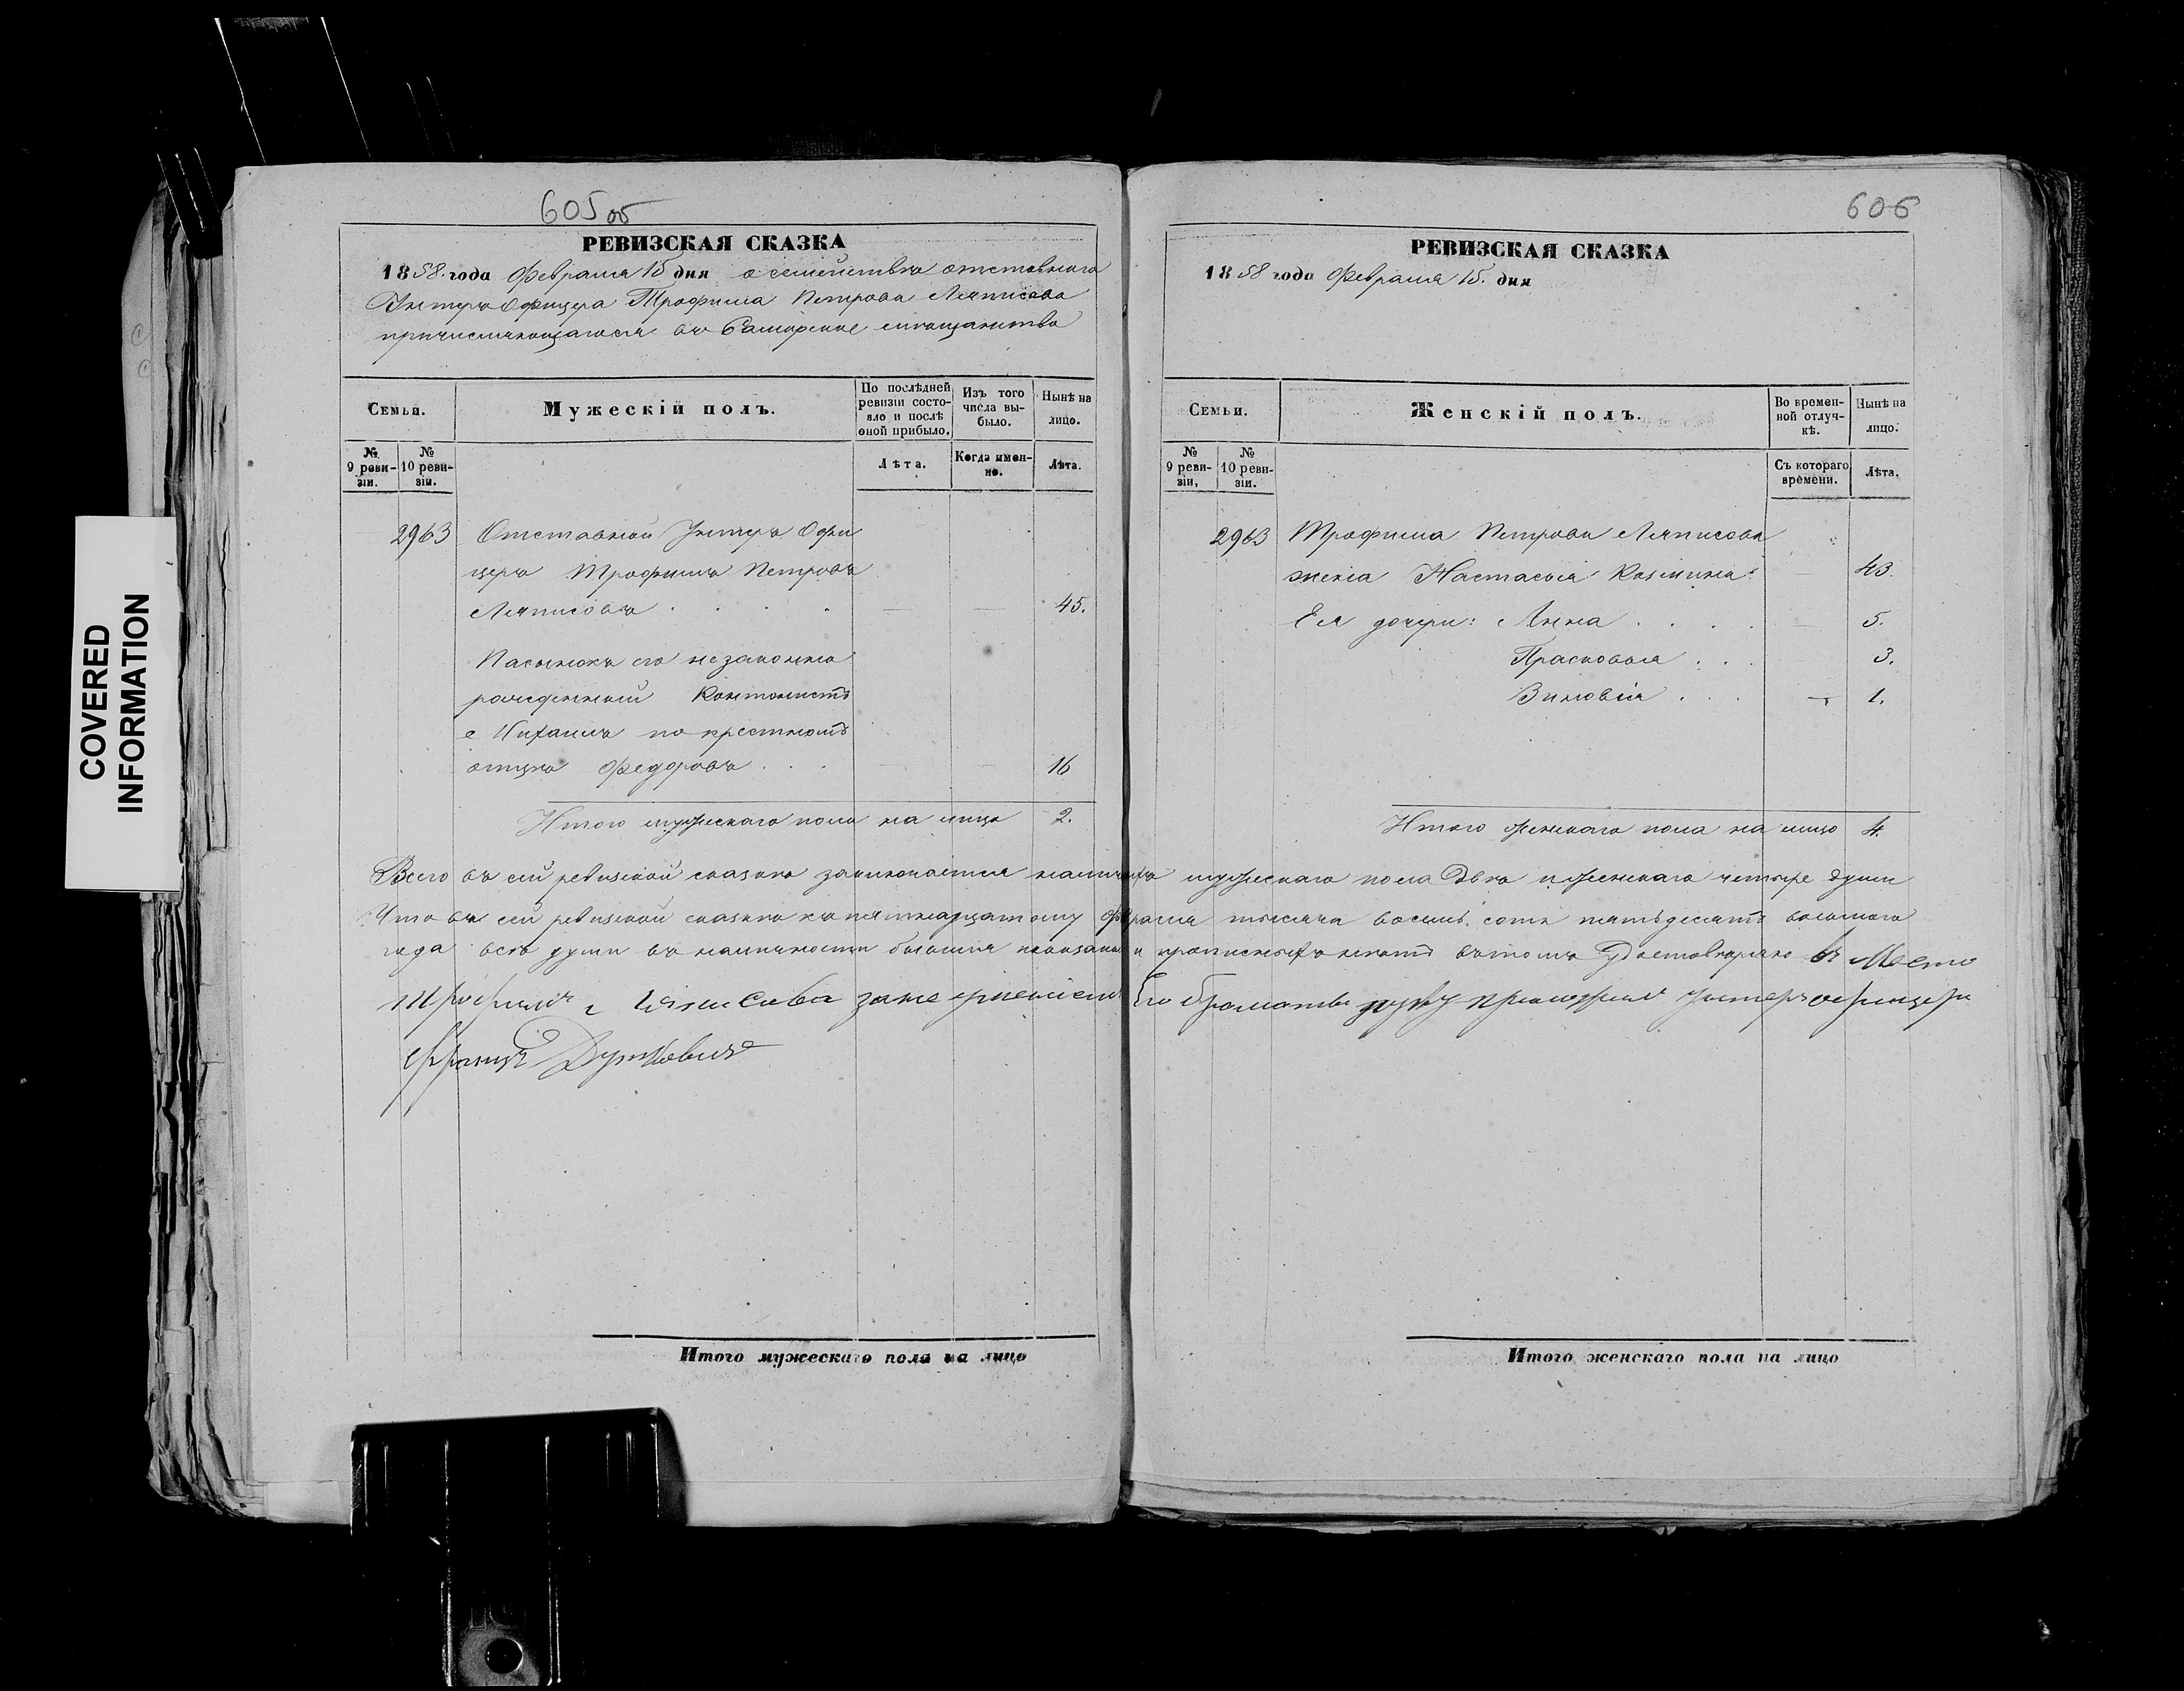 COVERED
INFORMATION
605 об
РЕВИЗСКАЯ СКАЗКА
1858. года Февраля 15 дня о семействѣ отставнаго
Унтеръ Офицера Трофима Петрова Ляписова
причисляющагося въ Самарское мѣщанство
Семьи.
Мужескій полъ.
По послѣдней ревизіи состояло и послѣ оной прибыло.
Изъ того числа выбыло.
Нынѣ на лицо.
№ 9 ревизіи.
№ 10 ревизіи.
Лѣта.
Когда именно.
Лѣта.
2963 Отставной Унтеръ Офи
церъ Трофимъ Петровъ
Ляписовъ . . . . — — 45.
Пасынокъ его незаконно
рожденный Кантонистъ
Михаилъ по крестномъ
отцѣ Федоровъ . . . — — 16
Итого мужескаго пола на лицо 2.
606
РЕВИЗСКАЯ СКАЗКА
1858 года Февраля 15. дня
Семьи.
Женскій полъ.
Во временной отлучкѣ.
Нынѣ на лицо.
№ 9 ревизіи,
№ 10 ревизіи.
Съ котораго времени.
Лѣта.
2963 Трофима Петрова Ляписова
жена Настасья Козмина 43.
Ея дочери: Анна . . . . — 5.
Прасковья . . . 3.
Зиновія . . . — 1.
Итого женскаго пола на лицо 4.
Всего въ сей ревизской сказкѣ заключается наличныхъ мужескаго пола двѣ и женскаго четыре души
Что въ сей ревизской сказкѣ къ пятнадцатому Февраля тысяча восемь сотъ пятьдесятъ восьмаго
года всѣ души въ наличности бывшія показаны и прописныхъ нѣтъ въ томъ удостовѣряю въ Место
Трофима Ляписова за не умениемъ Его Грамоты руку приложилъ Унтеръ офицеръ
Францъ
Итого мужескаго пола на лицо
Итого женскаго пола на лицо